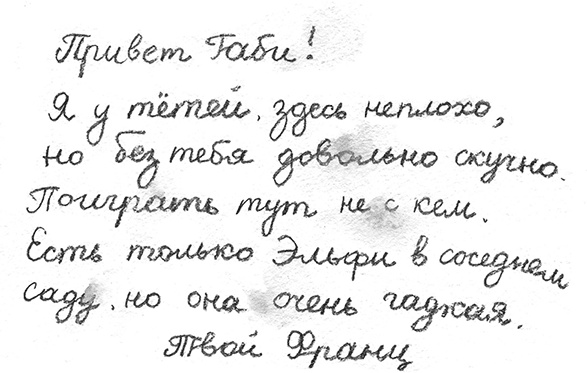 Привет Габи!
Я у тётей. здесь неплохо,
но без тебя довольно скучно.
Поиграть тут не с кем.
Есть только Эльфи в соседнем
саду. но она очень гаджая.
Твой Франц